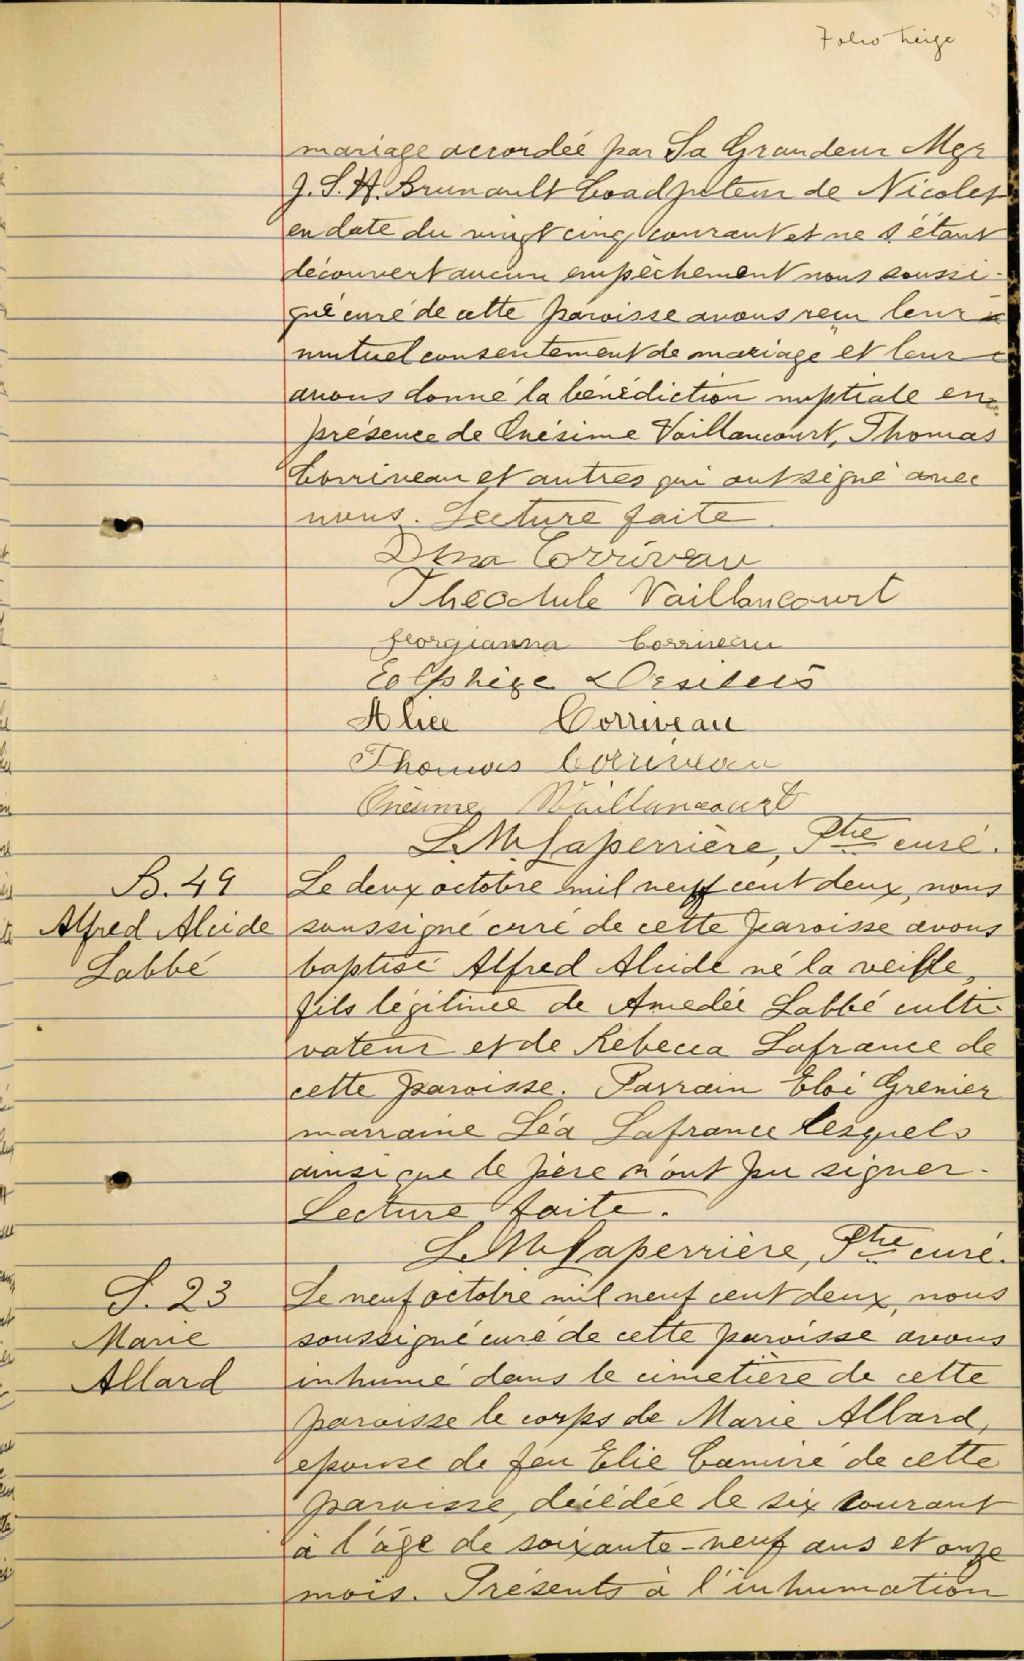 Folio treize
mariage accordée par Sa Grandeur Mgr
J. S. H. Brunault Coadjuteur de Nicolet
en date du vingt cinq courant et ne s'étant
découvert aucun empêchement nous soussi-
gné curé de cette paroisse avons reçu leur
mutuel consentement de mariage et leur
avons donné la bénédiction nuptiale en
présence de Onésime Vaillancourt, Thomas
Corriveau et autres qui ont signé avec
nous. Lecture faite.
Dina Corriveau
Theodule Vaillancourt
Georgianna Corriveau
Desilets
Alice Corriveau
Thomas Corriveau
Onésime Vaillancourt
L. M. Laperrière, Ptre curé.
B. 49
Alfred Alcide
Labbé
Le deux octobre mil neuf cent deux, nous
soussigné curé de cette paroisse avons
baptisé Alfred Alcide né la veille,
fils légitime de Amedée Labbé culti-
vateur et de Rebecca Lafrance de
cette paroisse. Parrain Eloi Grenier
marraine Léa Lafrance lesquels
ainsi que le père n'ont pu signer.
Lecture faite.
L. M. Laperrière, Ptre curé.
S. 23
Marie
Allard
Le neuf octobre mil neuf cent deux, nous
soussigné curé de cette paroisse avons
inhumé dans le cimetière de cette
paroisse le corps de Marie Allard,
epouse de feu Elie Camiré de cette
paroisse, décédée le six courant
à l'âge de soixante-neuf ans et onze
mois. Présents à l'inhumation